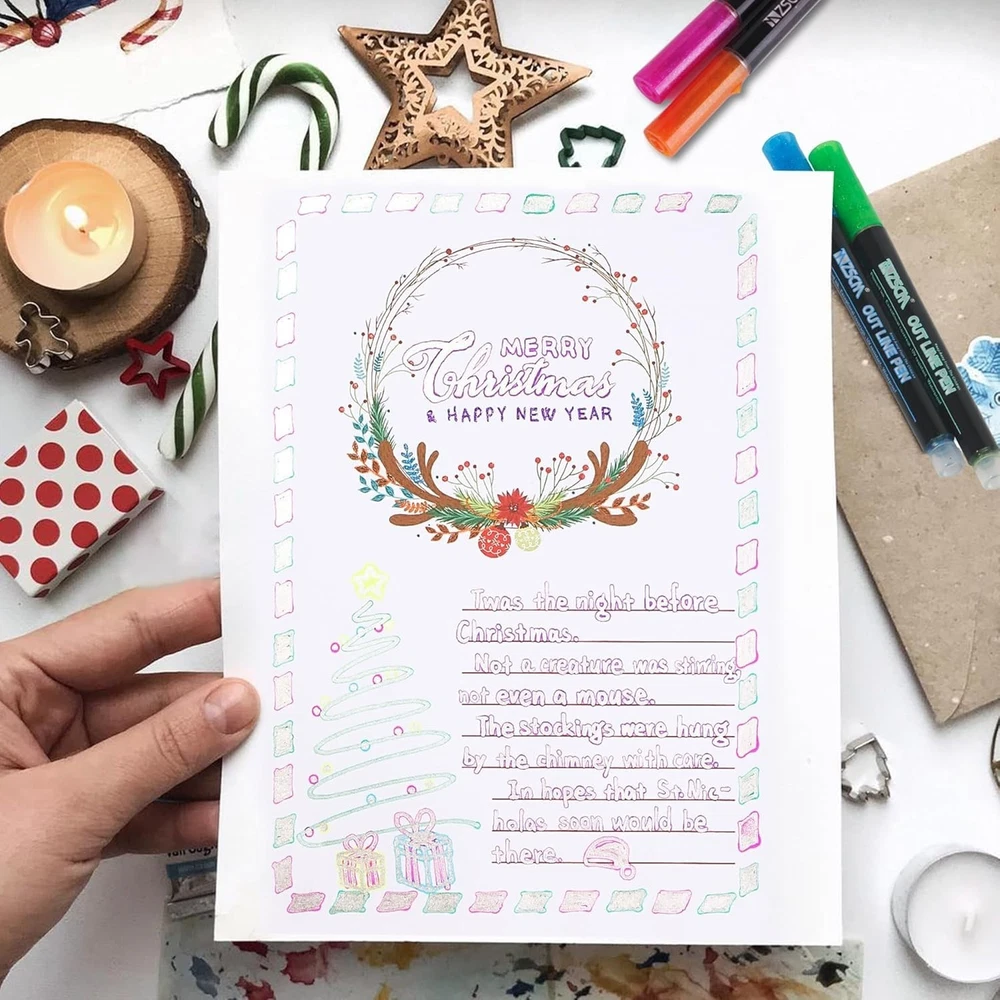 MERRY
Christmas
& HAPPY NEW YEAR
Twas the night before
Christmas.
Not a creature was stirring,
not even a mouse.
The stockings were hung
by the chimney with care.
In hopes that St. Nic-
holas soon would be
there.
INZSCN OUT LINE PEN
INZSCN OUT LINE PEN